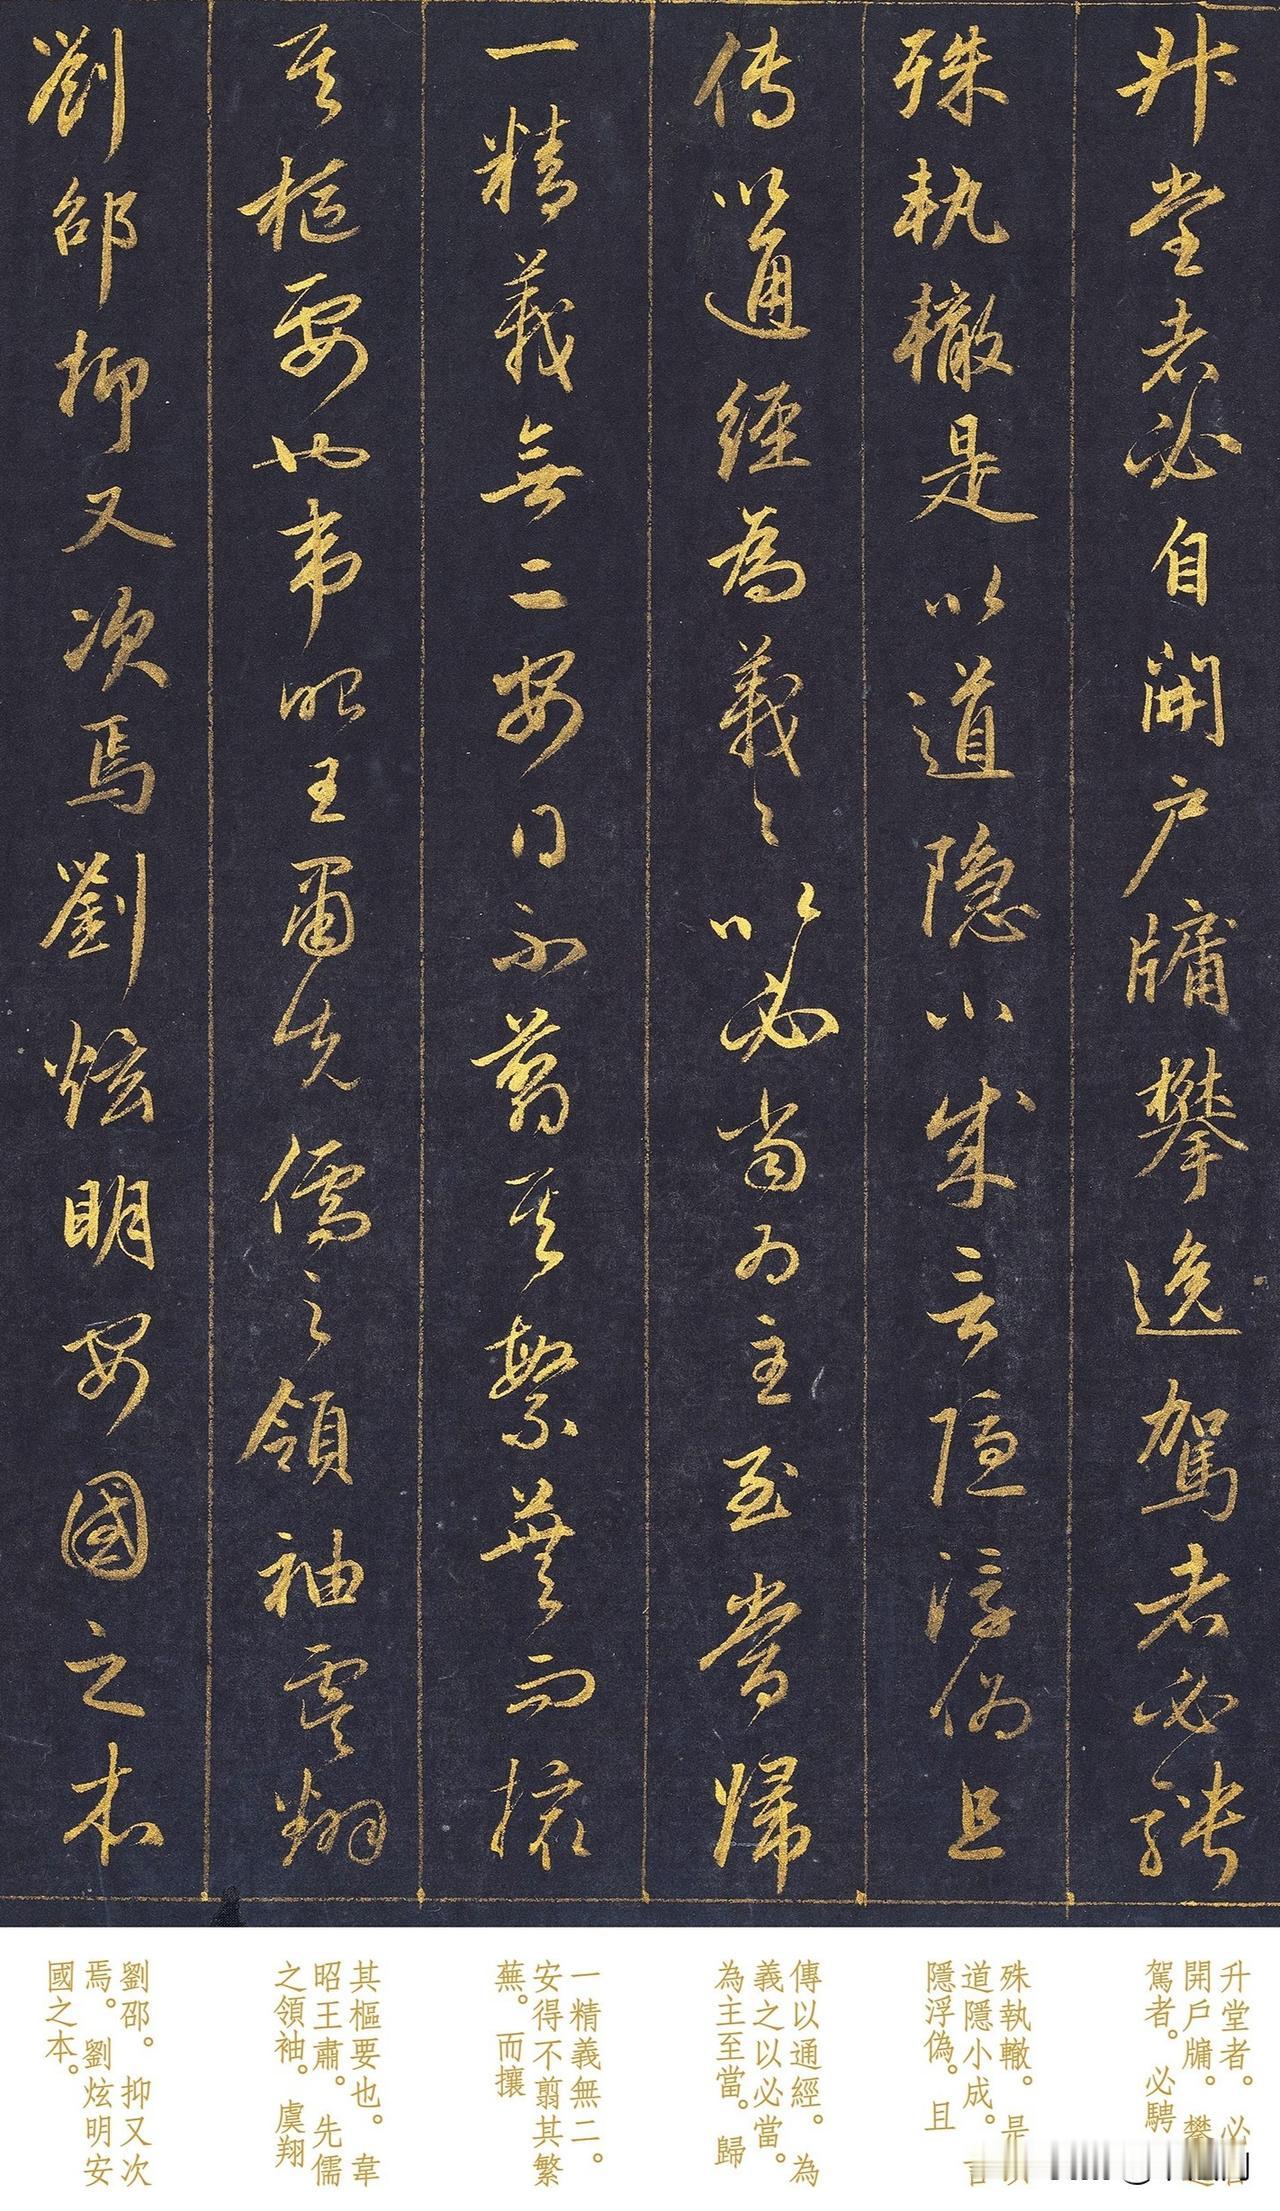 升堂者必自開户牖攀逸駕者必騁
殊執轍是以道隱小成言隱浮偽且
傳以通經為義々以必當為主至當歸
一精義無二安得不翦其繁蕪而撮
其樞要也韋昭王肅先儒之領袖虞翔
劉邵抑又次焉劉炫明安國之本
升堂者。必自
開戶牖。攀逸
駕者。必騁
殊執轍。是以
道隱小成。言
隱浮偽。且
傳以通經。為
義之以必當。
為主至當。歸
一精義無二。
安得不翦其繁
蕪。而攘
其樞要也。韋
昭王肅。先儒
之領袖。虞翔
劉邵。抑又次
焉。劉炫明安
國之本。